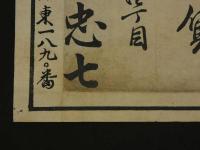 丁目
忠七
東一八九〇番